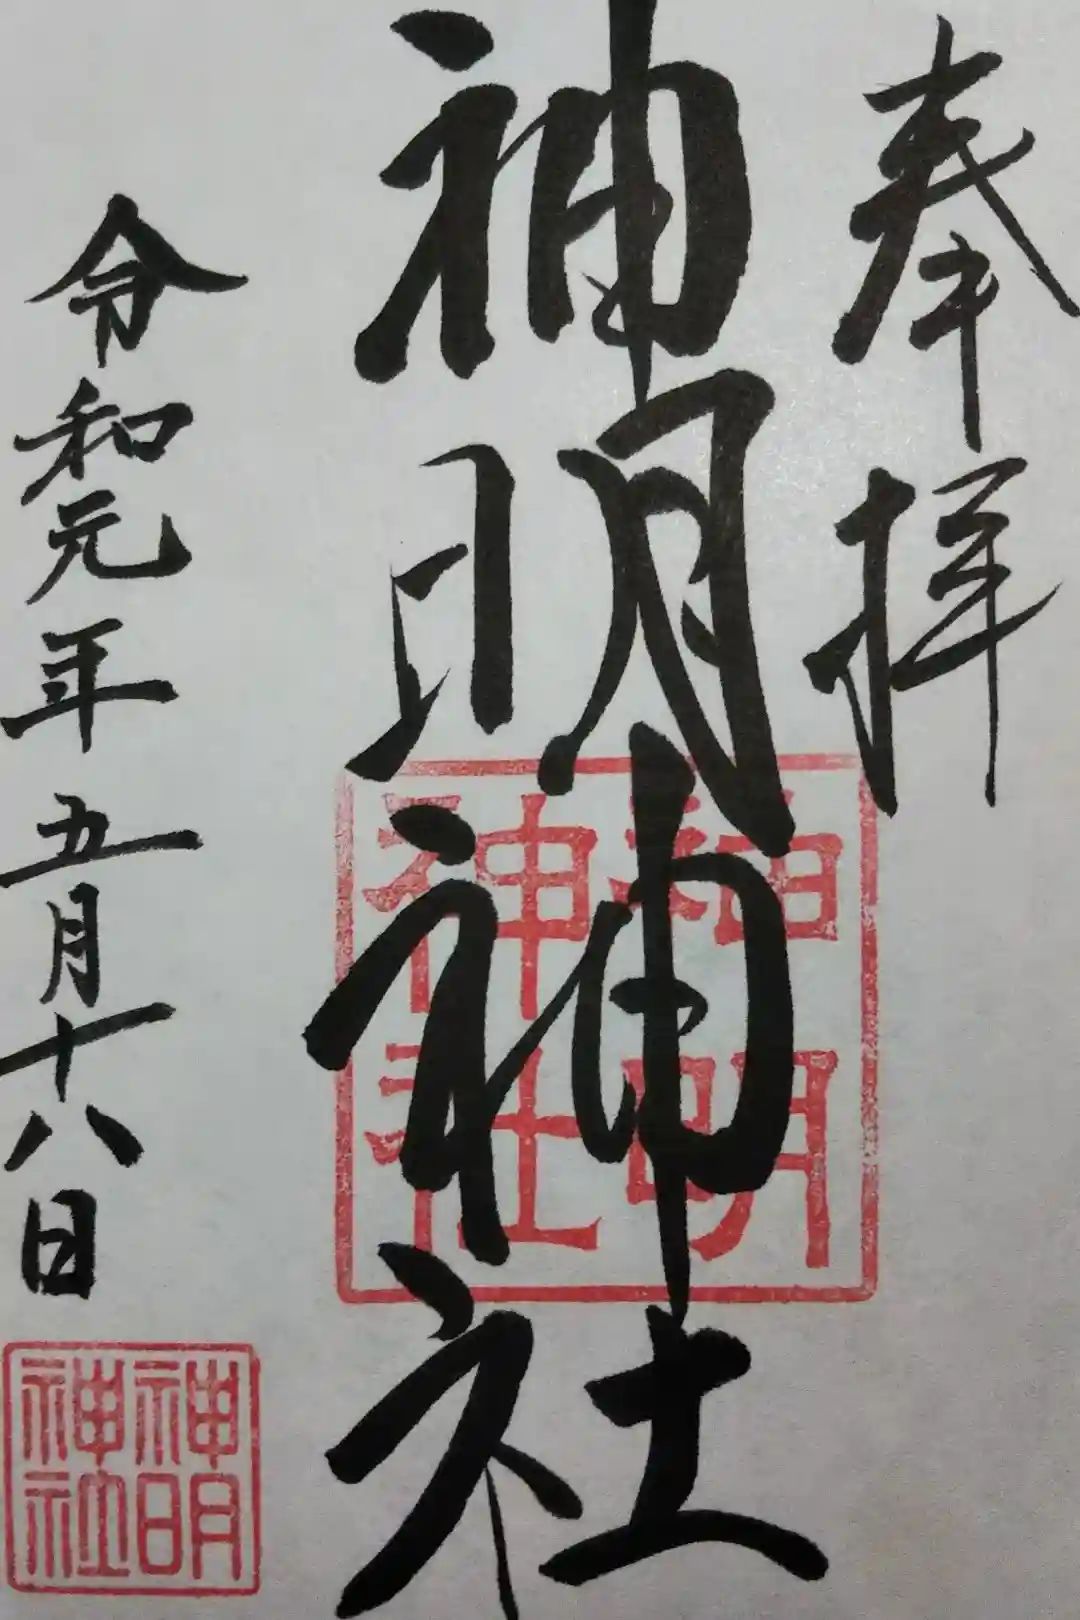 奉拝
神明神社
神明神社
令和元年五月十八日
神明神社